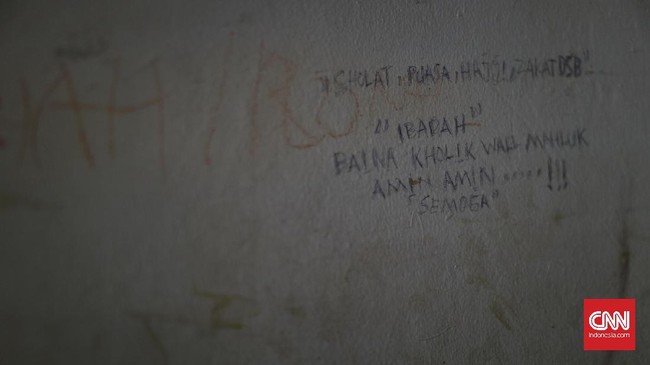 "SHOLAT, PUASA, HAJJI, ZAKAT DSB"
"IBADAH"
BAINA KHOLIK WAL MAHLUK
AMIN AMIN .....!!!
"SEMOGA"
CNN
Indonesia.com